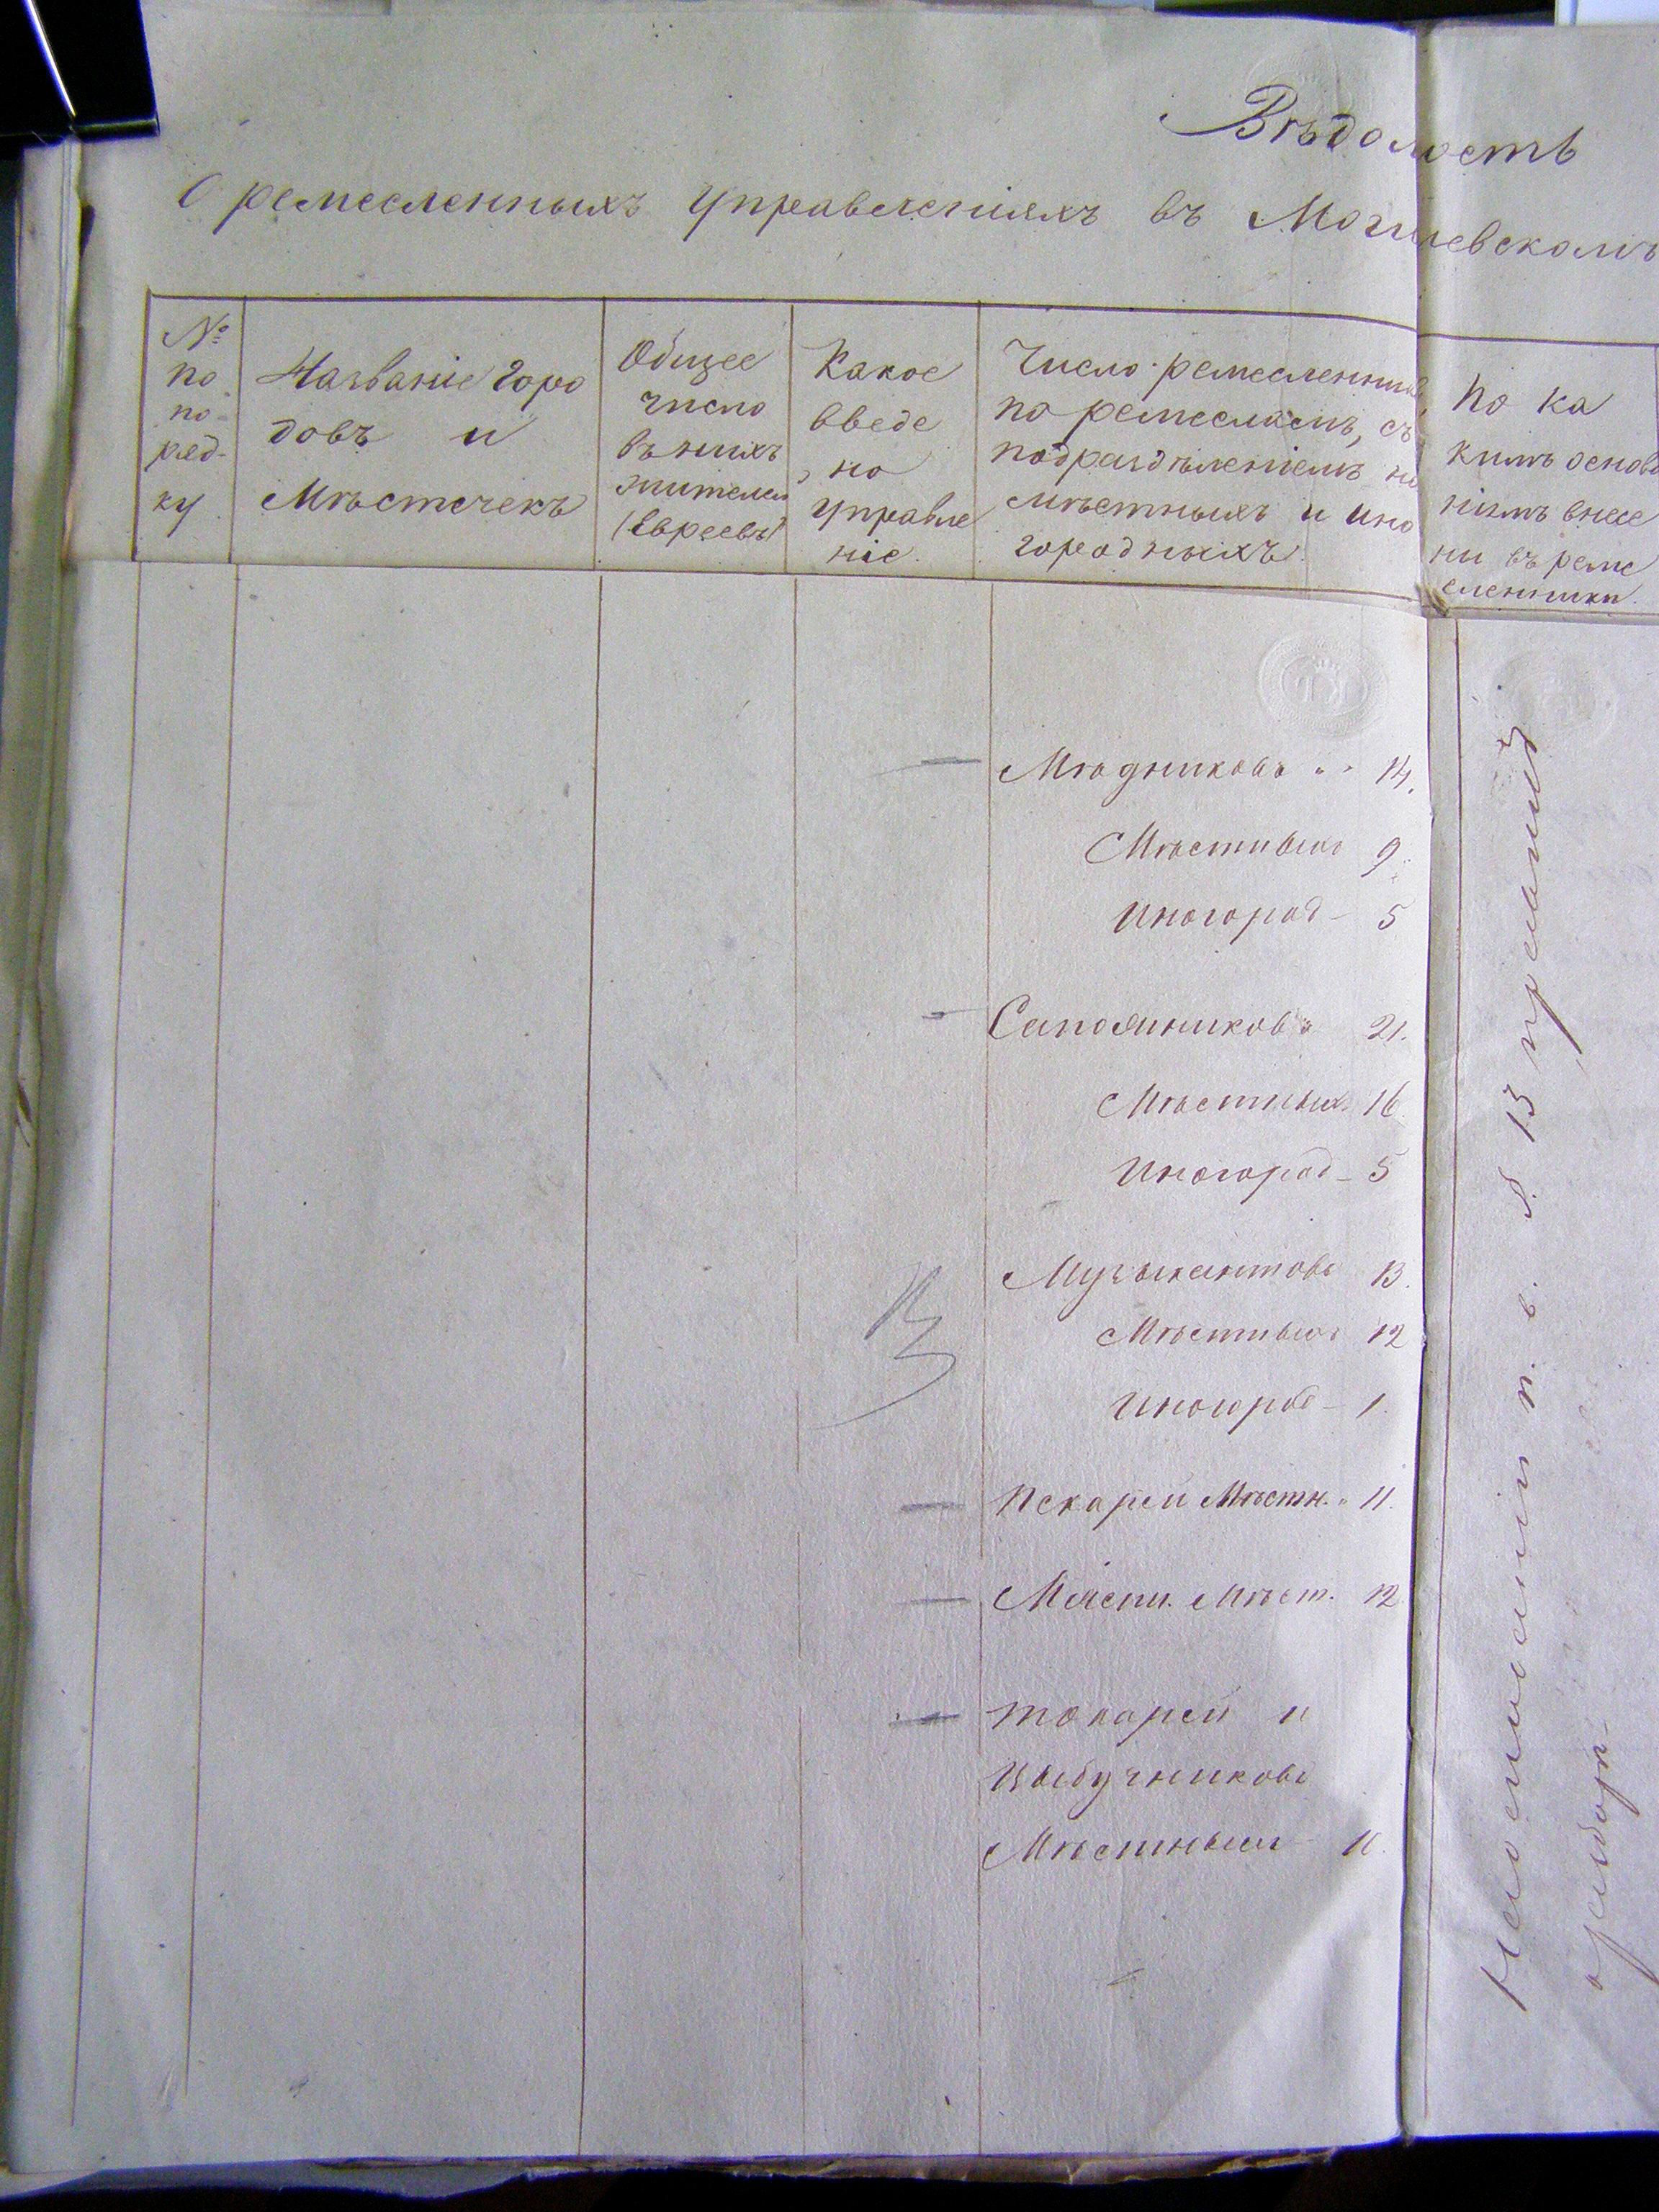 Вѣдомость
О ремесленныхъ управленіяхъ въ Могилевскомъ
№
по
по-
ряд-
ку
Названіе горо
довъ и
Мѣстечекъ
Общее
число
въ нихъ
жителей
(Евреевъ)
Какое
введе
но
управле
ніе.
Число ремесленник
по ремесламъ, съ
подраздѣленіемъ на
мѣстныхъ и ино
городныхъ.
По ка
кимъ основа
ніямъ внесе
ни въ реме
сленники.
Мѣдниковъ 14.
Мѣстныхъ 9.
Иногород- 5
Сапожниковъ 21.
Мѣстныхъ 16
Иногород- 5
Музыкантовъ 13.
Мѣстныхъ 12
Иногород- 1.
Пекарей Мѣстн. 11.
Мясн. Мѣст. 12
Токарей и
Цыбучниковъ
Мѣстныхъ
На основаніи п. в. § 13